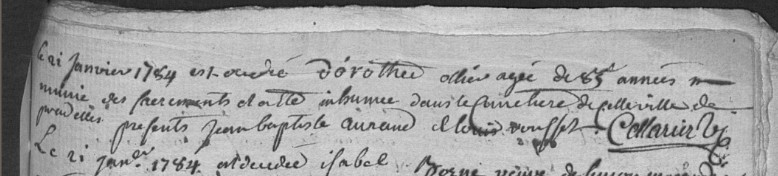 Le 21 janvier 1784 est decedé dorothée ollier agée de 85 années
munie des sacrements et a été inhumee dans le cimetiere de cette ville de
pradelles presents jean baptiste auraud et louis rousset Cellarier
Le 21 janer 1784 est decedée isabel veuve de